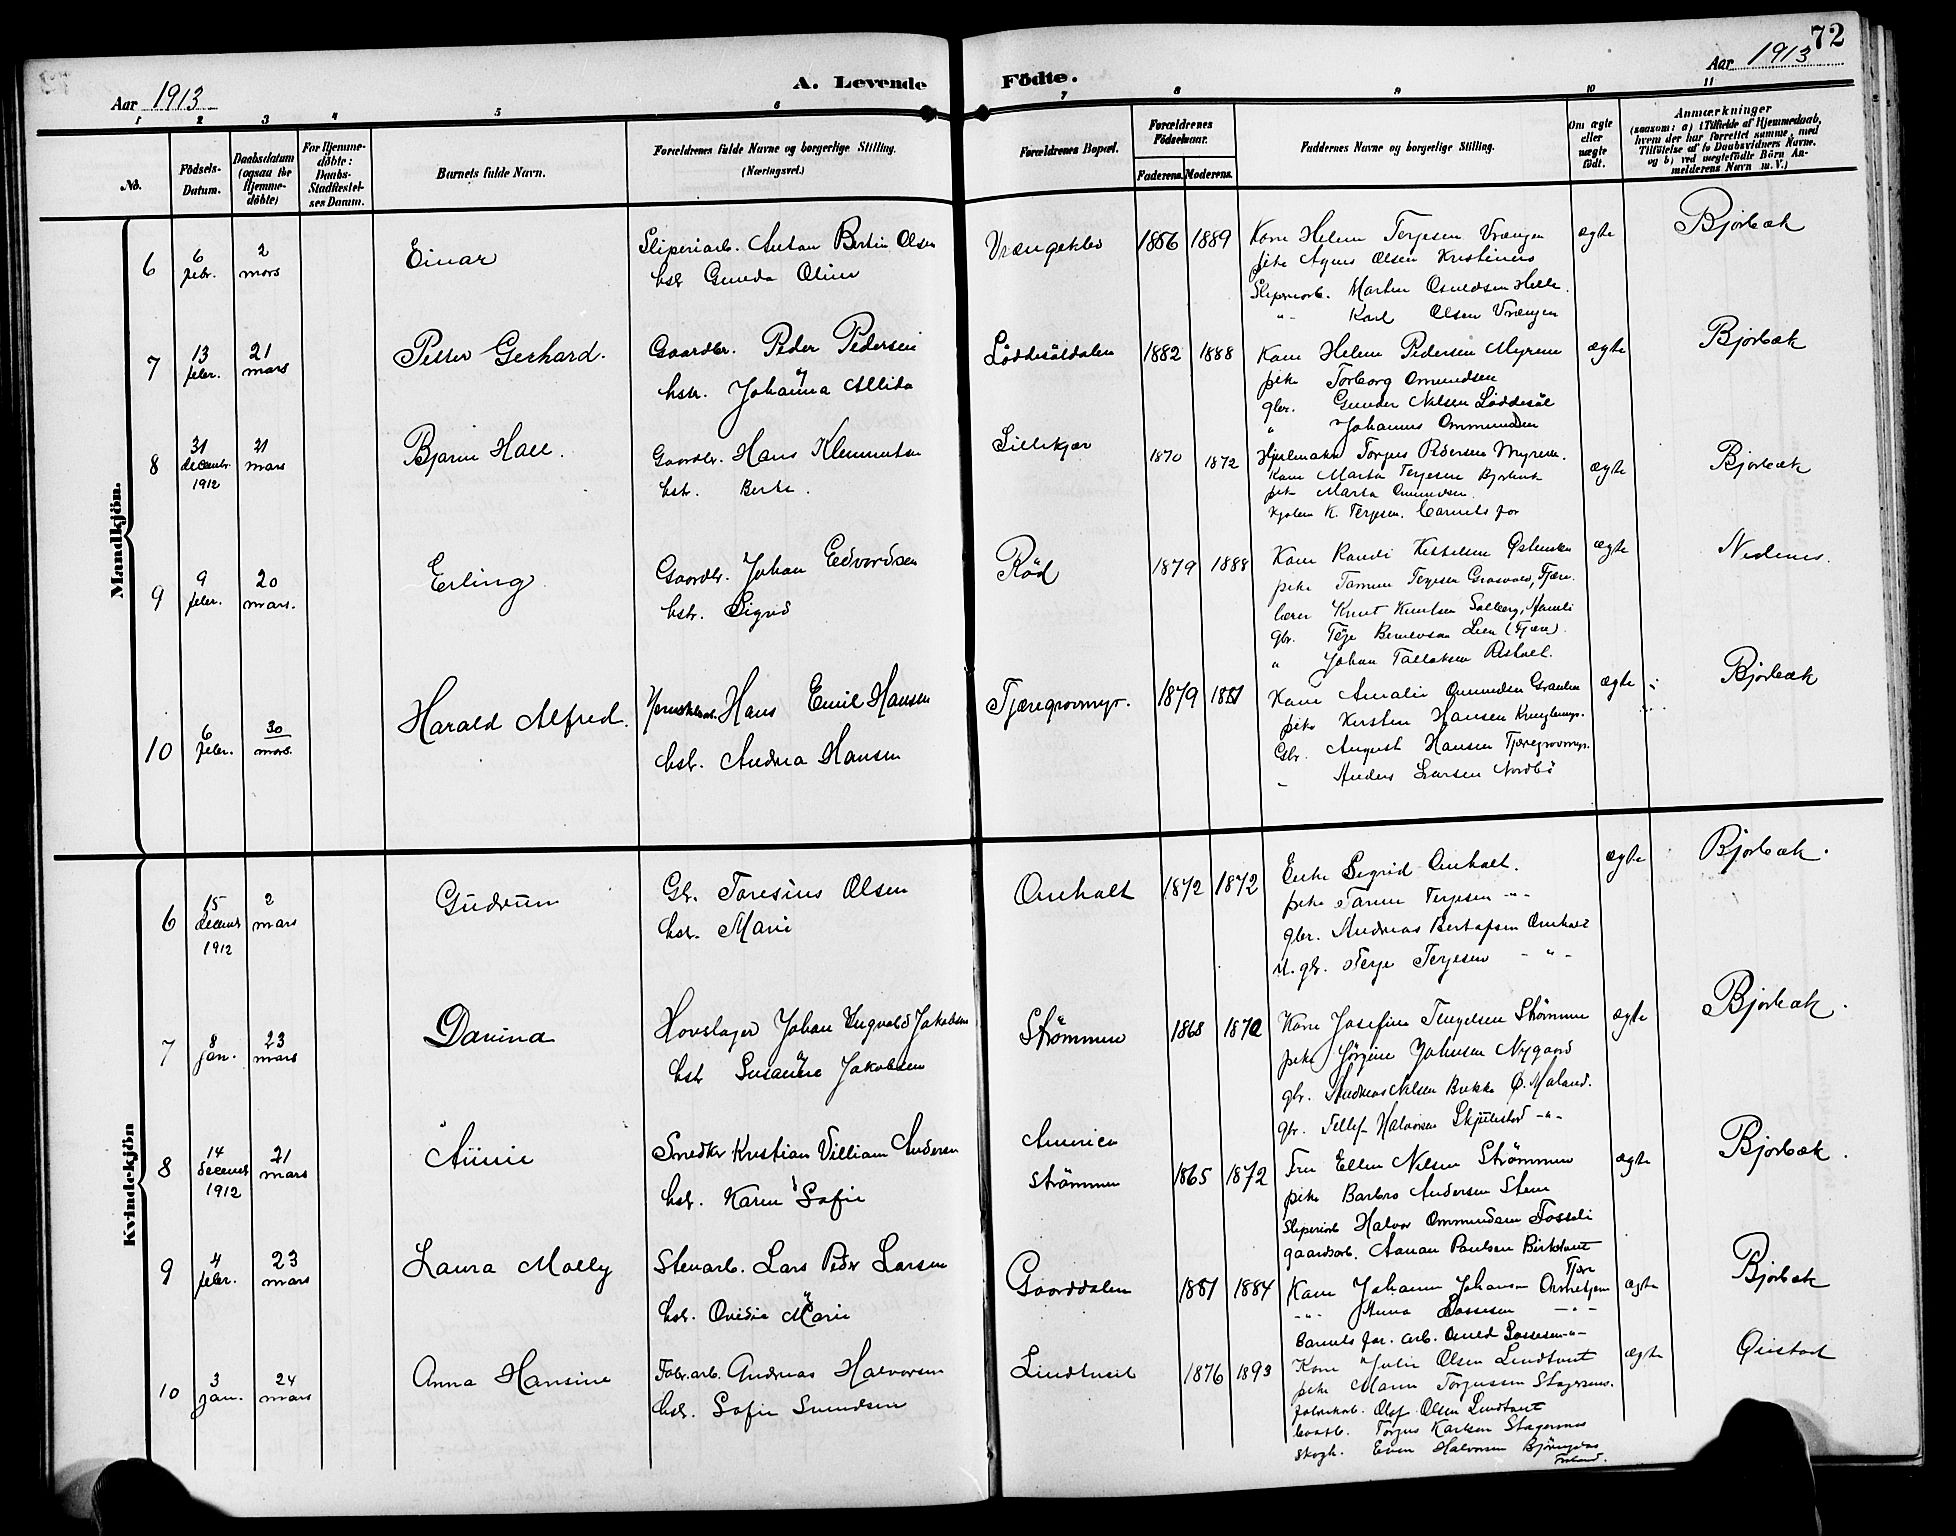 72
Aar 1913
A. Levende
Födte.
Aar 1913
1 2 3 4 5 6 7 8 9 10 11
No.
Födsels-Datum.
Daabsdatum (ogsaa for Hjemme-döbte)
For Hjemme-döbte: Daabs-Stadfæstel-ses Datum.
Barnets fulde Navn.
Forældrenes fulde Navne og borgerlige Stilling. (Næringsvei.)
Forældrenes Bopæl.
Forældrenes Födselsaar.
Faderens. Moderens.
Faddernes Navne og borgerlige Stilling.
Om ægte eller uægte födt.
Anmærkninger
(saasom: a) i Tilfælde af Hjemmedaab,
hvem der har forrettet samme, med
Tilföielse af to Daabsvidners Navne,
og b) ved uægtefödte Börn An-
melderens Navn m. V.)
Mandkjön.
6 6 febr. 2 mars Einar
Sliperiarb. Anton Bertin Olsen
hstr Gunda Oline
Vrængeklev 1886 1889
Kone Helene Terjesen Vrængen
pike Agnes Olsen
Sliperiarb. Martin Osuldsen Helle.
" Karl Olsen Vrængen
ægte Bjorbæk
7 13 febr. 21 mars Petter Gerhard.
Gaardbr. Peder Pedersen
hstr. Johanna Allida
Løddesøldalen 1882 1888
Kone Helene Pedersen Myrene
pike Torborg Omundsen
gbr. Gunder Nilsen Løddesøl
" Johannes Ommundsen
ægte Bjorbæk
8 31 decembr. 1912 21 mars Bjarne Hall.
Gaardbr. Hans Klemmetsen
hstr. Berte.
Lillekjær 1870 1872
Hjulmaker Torjus Pedersen Myrene.
Kone Marta Terjesen Bjorbæk
pike Marta Omundsen.
K. Terjesen. barnets far
ægte Bjorbæk
9 9 febr. 20 mars. Erling.
Gaardbr. Johan Edvardsen
hstr. Sigrid
Rød 1879 1888
Kone Randi Kittelsen
pike Tamine Terjesen Grasvold, Fjære.
lærer Knut Knutsen Solberg, Aamli
gbr. Terje Berntsen Lien (Fjære).
" Johan Tallaksen
ægte Nedenes.
10 6 febr. 30 mars. Harald Alfred.
Hans Emil Hansen
hstr. Andrea Hansen
Fjæregrovmyr. 1879 1881
Kone Amalie Omundsen
pike Kirsten Hansen
Gbr. August Hansen Fjæregrovmyr.
" Anders Larsen Nordbø
ægte Bjorbæk
Kvindekjön
6 15 decemb 1912 2 mars Gudrun
Gbr. Toresius Olsen
hstr. Marie
Omholt 1872 1872
Enke Sigrid Omholt.
pike Tamine Terjesen -"-
gbr. Andreas Bertofsen Omholt
u. gbr. Terje Terjesen - " -
ægte Bjorbæk.
7 8 jan. 23 mars Davina
Hovslager Johan Ingvald Jakobsen
hstr Susanne Jakobsen
Strømmen 1868 1872
Kone Josefine Tengelsen Strømmen
pike Jørgine Johnsen Nygaard
gbr. Andreas Nilsen Brekka Ø. Moland.
gbr. Tellef Halvorsen Skjulestad -"-
ægte Bjorbæk.
8 14 decemb 1912 21 mars Annie
Smedker Kristian Villiam Andersen
hstr. Karen Sofie
Amerika
Strømmen 1865 1872
Fru Ellen Nilsen Strømmen
pike Barbro Andersen Stene
Sliperiarb Halvor Ommundsen Fosseli
gaardsarb. Aanan Paulsen Birketvet
Fjære
ægte Bjorbæk.
9 4 febr. 23 mars Laura Molly
Stenarb. Lars Peder Larsen
hstr. Ovidia Marie
Gaarddalen 1881 1884
Kone Johanne Johansen
-"- Anna Lassesen -"-
barnets far. arb. Osuld Lassesen -"-
ægte Bjorbæk
10 3 jan. 24 mars Anna Hansine
Fabr.arb. Andreas Halvorsen
hstr. Sofie Svendsen
Lindtveit 1876 1893
Kone Julie Olsen Lindtveit
pike Maren Torjussen
fabrikarb. Olaf Olsen Lindtveit
Torjus Karlsen
skogh. Even Halvorsen
Froland.
ægte Øiestad